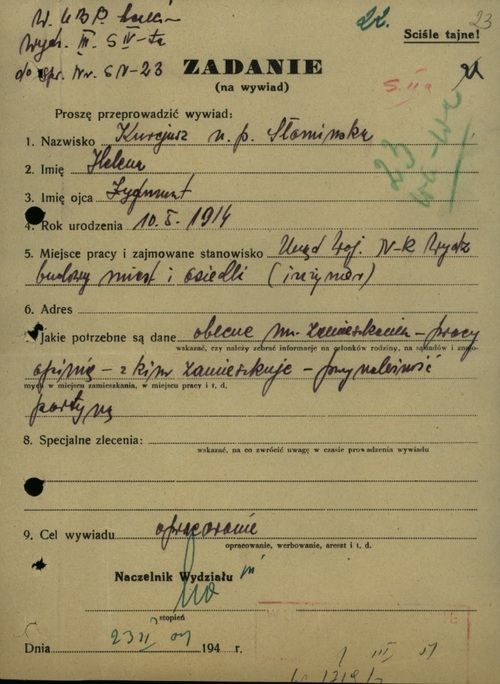 W. U B P.
Wydz. III. S IV-ta
do spr. Nr. S N-23
22.
23
Ściśle tajne!
ZADANIE
(na wywiad)
S. II a
23
Proszę przeprowadzić wywiad:
1. Nazwisko Kurcjusz n. p. Słomińska
2. Imię Helena
3. Imię ojca Zygmunt
4. Rok urodzenia 10. 5. 1914
5. Miejsce pracy i zajmowane stanowisko Urząd Woj. N-k Wydz
budowy miast i osiedli (inżynier)
6. Adres
Jakie potrzebne są dane obecne m. zamieszkania - pracy
wskazać, czy należy zebrać informacje na członków rodziny, na sąsiadów i znajo-
opinię - z kim zamieszkuje - przynależność
mych w miejscu zamieszkania, w miejscu pracy i t. d.
partyjną
8. Specjalne zlecenia:
wskazać, na co zwrócić uwagę w czasie prowadzenia wywiadu
9. Cel wywiadu opracowanie
opracowanie, werbowanie, areszt i t. d.
Naczelnik Wydziału III
stopień
Dnia 23 II 194 r.
III 51